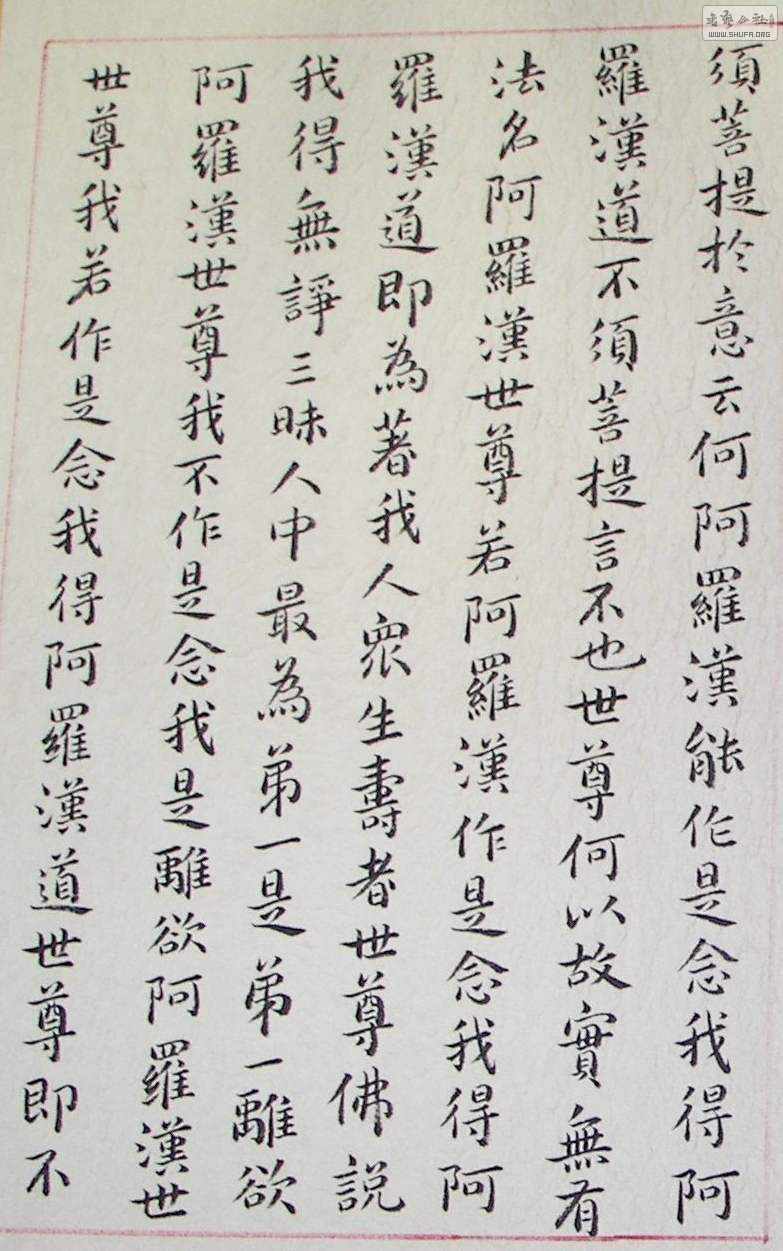 須菩提於意云何阿羅漢能作是念我得阿
羅漢道不須菩提言不也世尊何以故實無有
法名阿羅漢世尊若阿羅漢作是念我得阿
羅漢道即為著我人衆生壽者世尊佛説
我得無諍三昧人中最為第一是第一離欲
阿羅漢世尊我不作是念我是離欲阿羅漢世
世尊我若作是念我得阿羅漢道世尊即不
書藝公社
WWW.SHUFA.ORG